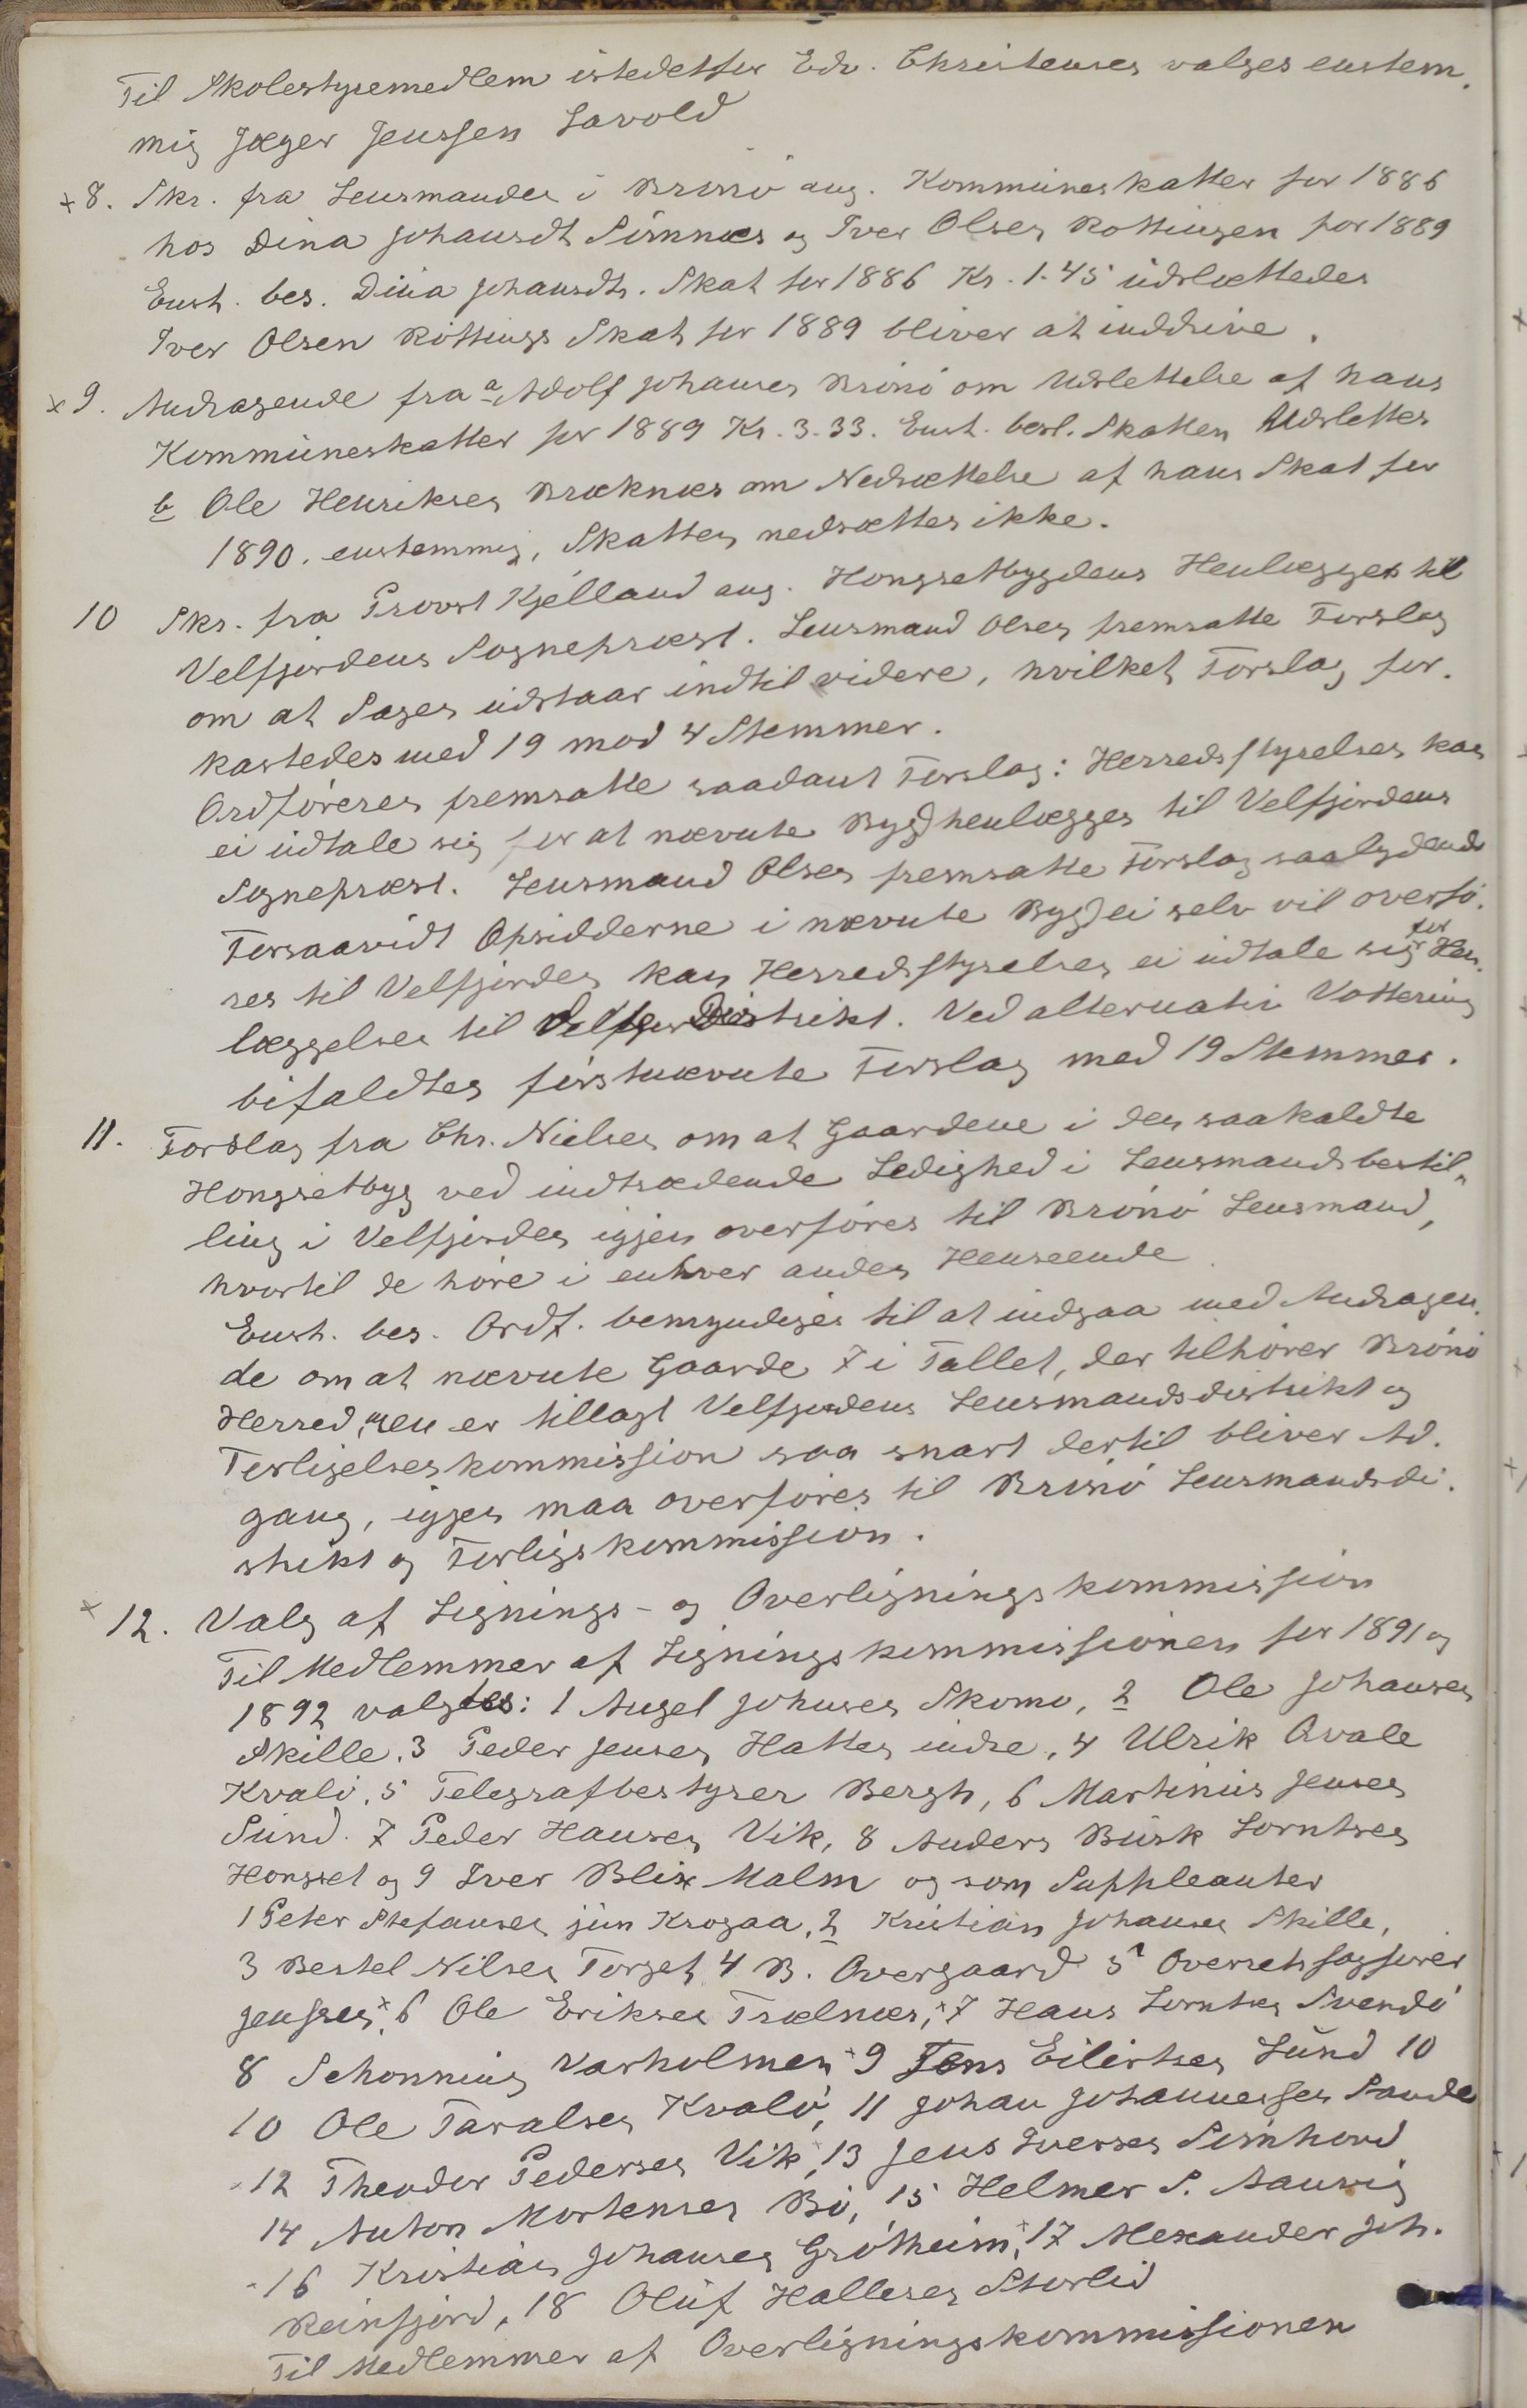 Til Skolestyremedlem istedetfor Edv. Christensen valges enstem.
mig Jæger Jenssen Lavold
x 8. Skr. fra Lensmanden i Brönö ang. Kommuneskatter for 1886
hos Dina Johansdt Sömnæs og Iver Olsen Rottingen for 1889
Enst. bes. Dina Johansdts. Skat for 1886 Kr. 1.45 udslettedes
Iver Olsen Röttings Skat for 1889 bliver at inddrive.
x 9. Andragende fra a Adolf Johansen Brönö om Udslettelse af hans
Kommuneskatter for 1889 Kr. 3.33. Enst. besl. Skatten Udslettes
b Ole Henriksen Bræknæs om Nedsættelse af hans Skat for
1890. enstemmig, Skatten nedsættes ikke.
10 Skr. fra Provst Kjelland ang. Hongsetbygdens Henlægges til
Velfjordens Sogneprest. Lensmand Olsen fremsatte Forslag
om at Sagen udstaar indtil videre, hvilket Forslag for.
kastedes med 19 mod 4 Stemmer.
Ordföreren fremsatte saadant Forslag: Herredsstyrelsen kan
ei udtale sig for at nævnte Bygd henlægges til Velfjordens
Sogneprest. Lensmand Olsen fremsatte Forslag saalydende
Forsaavidt Opsidderne i nævnte Bygd ei selv vil overfö.
res til Velfjorden kan Herredsstyrelsen ei udtale sig for Hen.
læggelsen til Velfjor Distrikt. Ved alternativ Vottering
bifaldtes förstnævnte Forslag med 19 Stemmer.
11. Forslag fra Chr. Nielsen om at Gaardene i den saakaldte
Hongsetbyg ved indtrædende Ledighed i Lensmandsbestil„
ling i Velfjorden igjen overföres til Brönö Lensmand,
hvortil de höre i enhver anden Henseende
Enst. bes. Ordf. bemyndiges til at indgaa med Andragen.
de om at nævnte Gaarde 7 i Tallet, der tilhörer Brönö
Herred, men er tillagt Velfjordens Lensmandsdistrikt og
Forligelseskommission saa snart dertil bliver Ad.
gang, igjen maa overföres til Brönö Lensmandsdi.
strikt og Forligskommission.
x 12. Valg af Lignings- og Overligningskommission
Til Medlemmer af Ligningskommissionen for 1891 og
1892 valgtes: 1 Angel Johnsen Skomo, 2 Ole Johansen
Skille, 3 Peder Jensen Hatten indre, 4 Ulrik Qvale
Kvalö, 5 Telegrafbestyrer Bergh, 6 Martinus Jensen
Sund. 7 Peder Hansen Vik, 8 Anders Busk Lorntsen
Hongset og 9 Iver Blix Malm og som Suppleanter
1 Peter Stefansen jun Krogaa, 2 Kristian Johansen Skille,
3 Bertel Nilsen Torget 4 B. Overgaard 5 Overretssagförer
Jenssen, x 6 Ole Eriksen Trælnæs, x 7 Hans Lorntsen Svendö
8 Schonning Varholmen x 9 Jens Eilertsen Lund 10
10 Ole Tavalsen Kvalö, 11 Johan Johannessen Sande
12 Theodor Pedersen Vik, x 13 Jens Iversen Sömhovd
14 Anton Mortensen Bö, 15 Helmer S. Aunvig
16 Kristian Johansen Grötheim, x 17 Alexander Joh.
Reinfjord, 18 Oluf Hallesen Storlid
Til Medlemmer af Overligningskommissionen